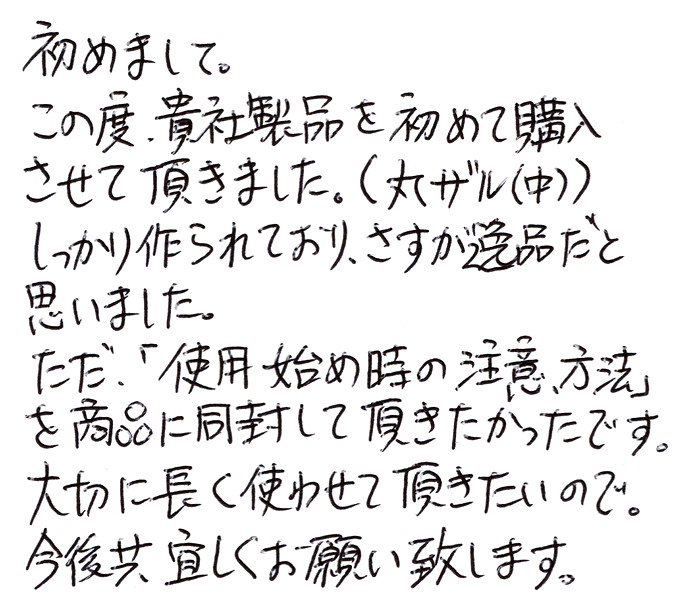 初めまして。
この度、貴社製品を初めて購入
させて頂きました。（丸ザル（中））
しっかり作られており、さすが逸品だと
思いました。
ただ、「使用始め時の注意、方法」
を商品に同封して頂きたかったです。
大切に長く使わせて頂きたいので。
今後共、宜しくお願い致します。